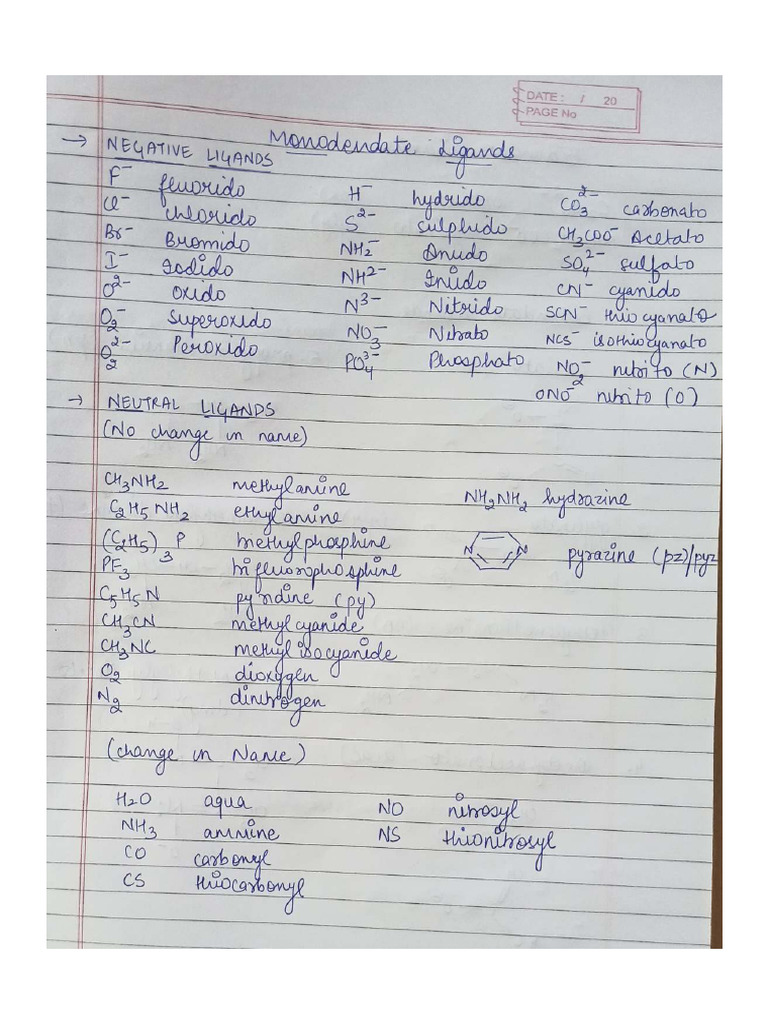 DATE: / 20
PAGE No
Monodendate Ligands
→ NEGATIVE LIGANDS
F⁻ fluorido H⁻ hydrido CO₃²⁻ carbonato
Cl⁻ chlorido S²⁻ sulphido CH₃COO⁻ Acetato
Br⁻ Bromido NH₂⁻ Amido SO₄²⁻ sulfato
I⁻ Iodido NH²⁻ Imido CN⁻ cyanido
O²⁻ oxido N³⁻ Nitrido SCN⁻ thiocyanato
O₂⁻ superoxido NO₃⁻ Nitrato NCS⁻ isothiocyanato
O₂²⁻ Peroxido PO₄³⁻ Phosphato NO₂⁻ nitrito (N)
ONO⁻ nitrito (O)
→ NEUTRAL LIGANDS
(No change in name)
CH₃NH₂ methylamine NH₂NH₂ hydrazine
C₂H₅NH₂ ethylamine
(C₂H₅)₃P methylphosphine N N pyrazine (pz)/pyz
PF₃ trifluorophosphine
C₅H₅N pyridine (py)
CH₃CN methylcyanide
CH₃NC methylisocyanide
O₂ dioxygen
N₂ dinitrogen
(change in Name)
H₂O aqua NO nitrosyl
NH₃ ammine NS thionitrosyl
CO carbonyl
CS thiocarbonyl